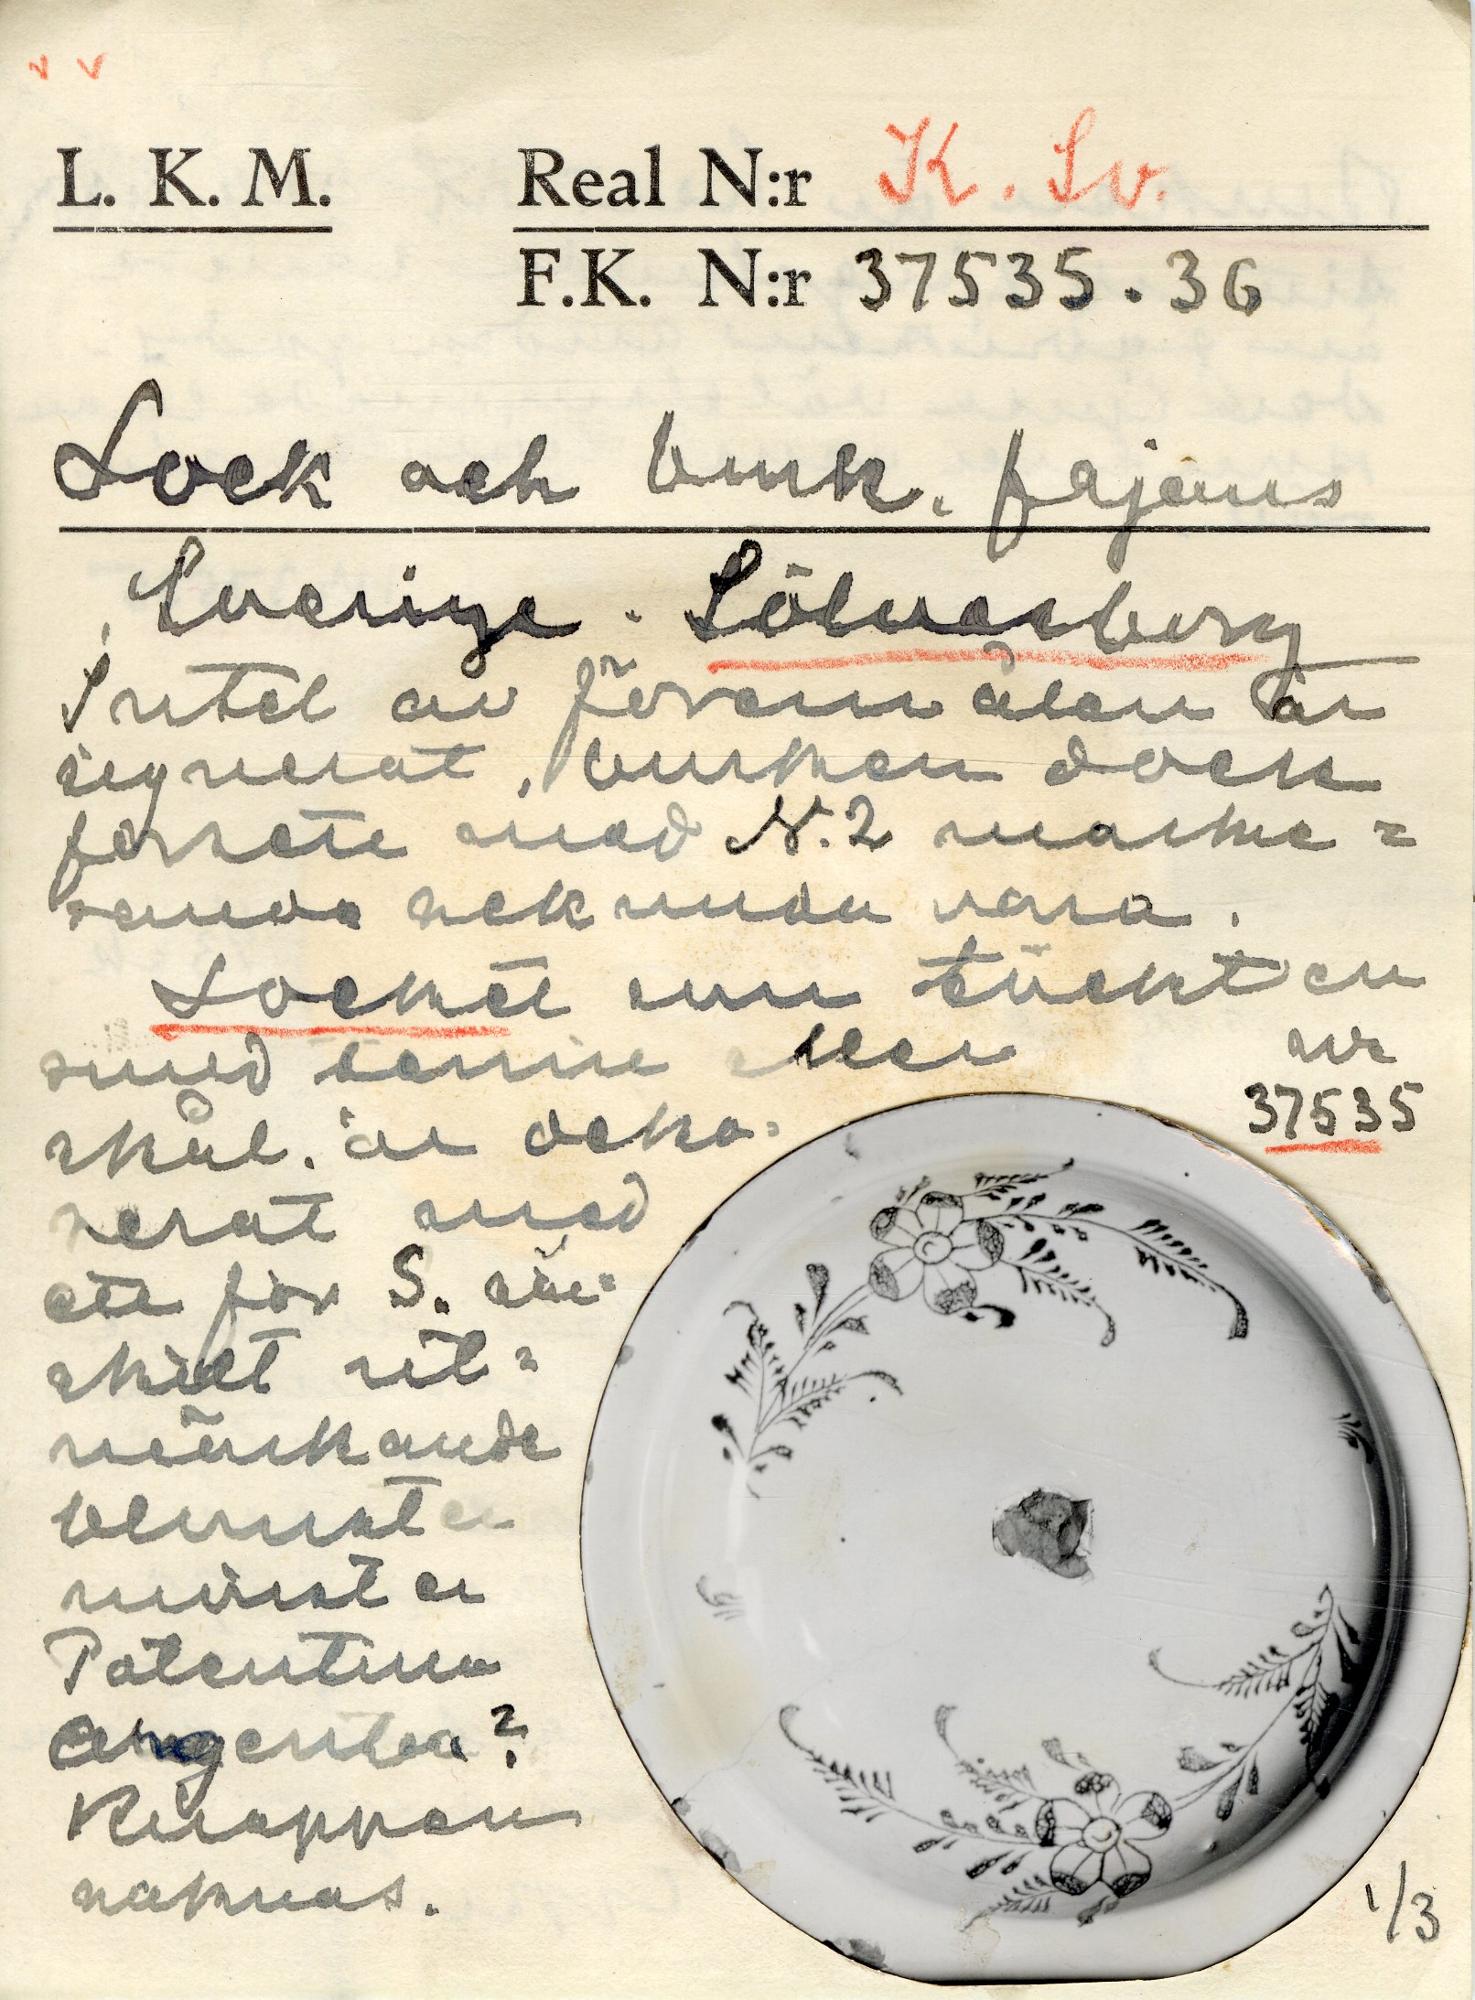 v v
L. K. M.
Real N:r K. Sv.
F.K. N:r 37535.36
Lock och burk. fajans
Sverige. Sölvesborg
Intet av föremålen är
signerat, burken dock
försett med N.2 marke=
rande sekunda vara.
Locket som täckt en
med terrin eller
nr
37535
skål. är deko=
rerat med
ett för S. sär=
skilt ut=
märkande
blomster
mönster
Potentilla
argentea?
Knoppen
saknas.
1/3